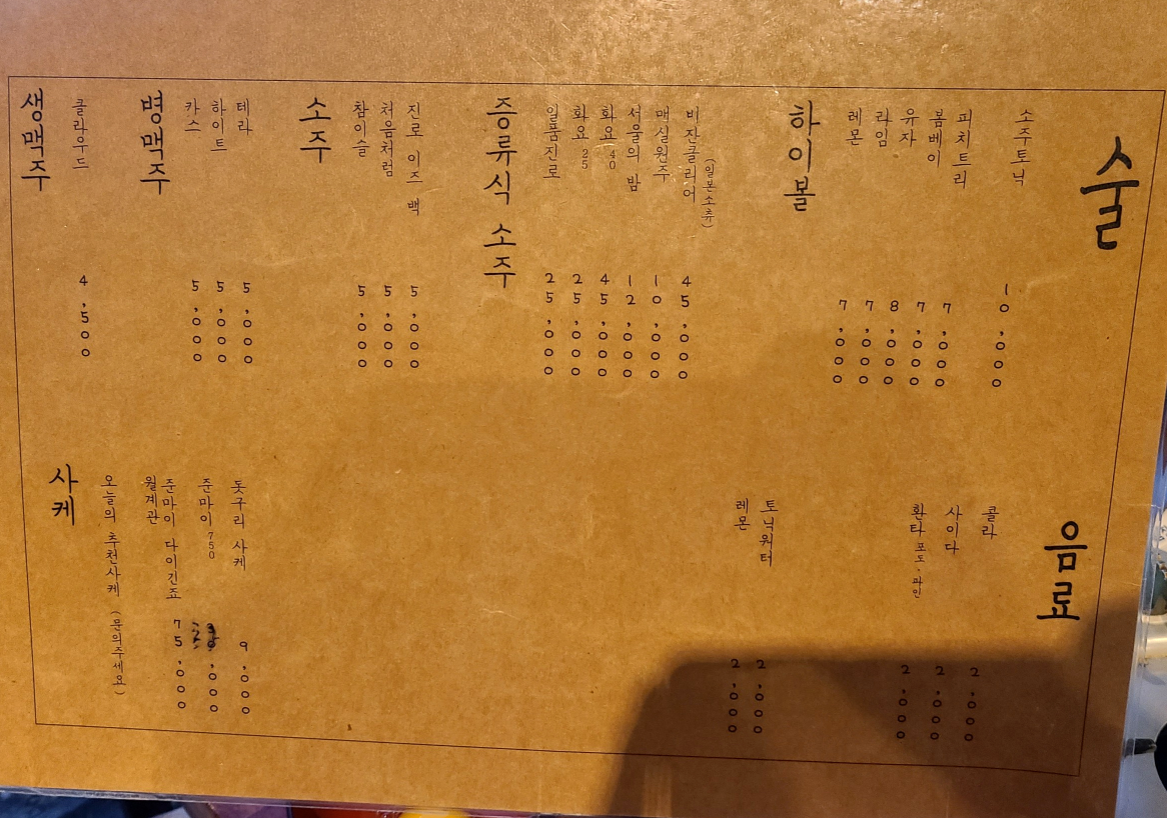 술
생맥주
클라우드 4,500
병맥주
카스 5,000
하이트 5,000
테라 5,000
소주
참이슬 5,000
처음처럼 5,000
진로 이즈 백 5,000
증류식 소주
일품진로 25,000
화요 25 25,000
화요 40 45,000
서울의 밤 12,000
매실원주 10,000
비잔클리어 45,000
(일본소츄)
하이볼
레몬 7,000
라임 7,000
유자 8,000
봄베이 7,000
피치트리 7,000
소주토닉 10,000
사케
오늘의 추천사케 (문의주세요)
월계관
준마이 다이긴죠 75,000
준마이 750
돗구리 사케 9,000
음료
콜라 2,000
사이다 2,000
환타 포도·파인 2,000
토닉워터 2,000
레몬 2,000